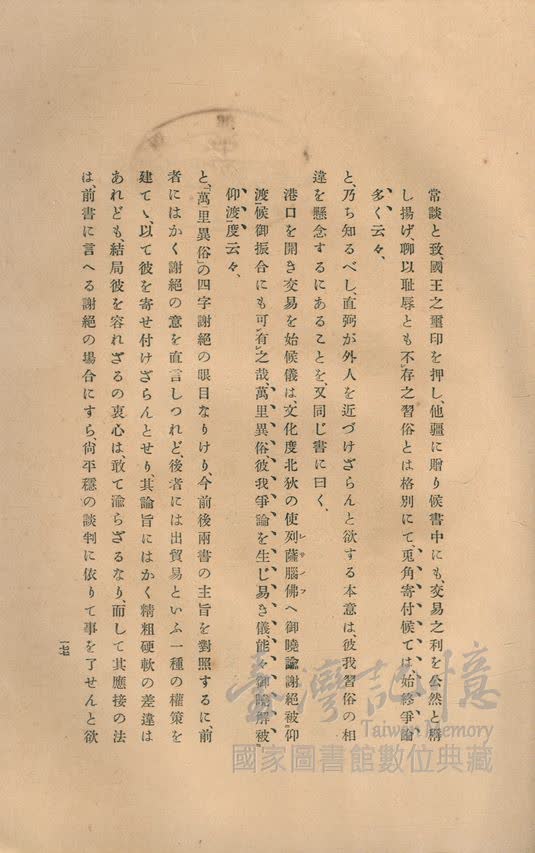 常談と致、國王之璽印を押し、他疆に贈り候書中にも、交易之利を公然と稱
し揚げ、聊以耻辱とも不存之習俗とは格別にて、兎角寄付候ては、始終爭論
多く云々、
と、乃ち知るべし、直弼が外人を近づけざらんと欲する本意は、彼我習俗の相
違を懸念するにあることを、又同じ書に曰く、
港口を開き交易を始候儀は、文化度北狄の使列薩腦佛へ御曉諭謝絕被仰
レサノフ
渡候御振合にも可有之哉、萬里異俗、彼我爭論を生じ易き儀、能々御曉解被
仰渡度云々、
と、「萬里異俗」の四字謝絕の眼目なりけり、今前後兩書の主旨を對照するに、前
者にはかく謝絕の意を直言しつれど、後者には出貿易といふ一種の權策を
建てゝ、以て彼を寄せ付けざらんとせり、其論旨にはかく精粗硬軟の差違は
あれども、結局彼を容れざるの衷心は、敢て渝らざるなり、而して其應接の法
は、前書に言へる謝絕の場合にすら、尙平穩の談判に依りて事を了せんと欲
一七
臺灣記憶
Taiwan Memory
國家圖書館數位典藏